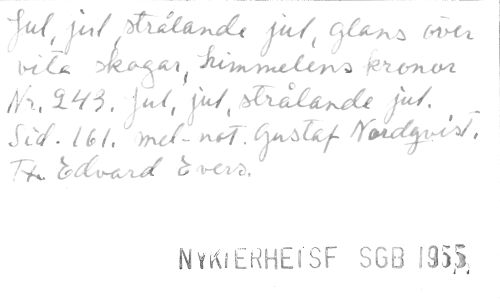 Jul, jul, strålande jul, glans över
vita skogar, himmelens kronor
Nr. 243. Jul, jul, strålande jul.
Sid. 161. mel-not. Gustaf Nordqvist.
Tx. Edvard Evers.
NYKTERHETSF SGB 1955